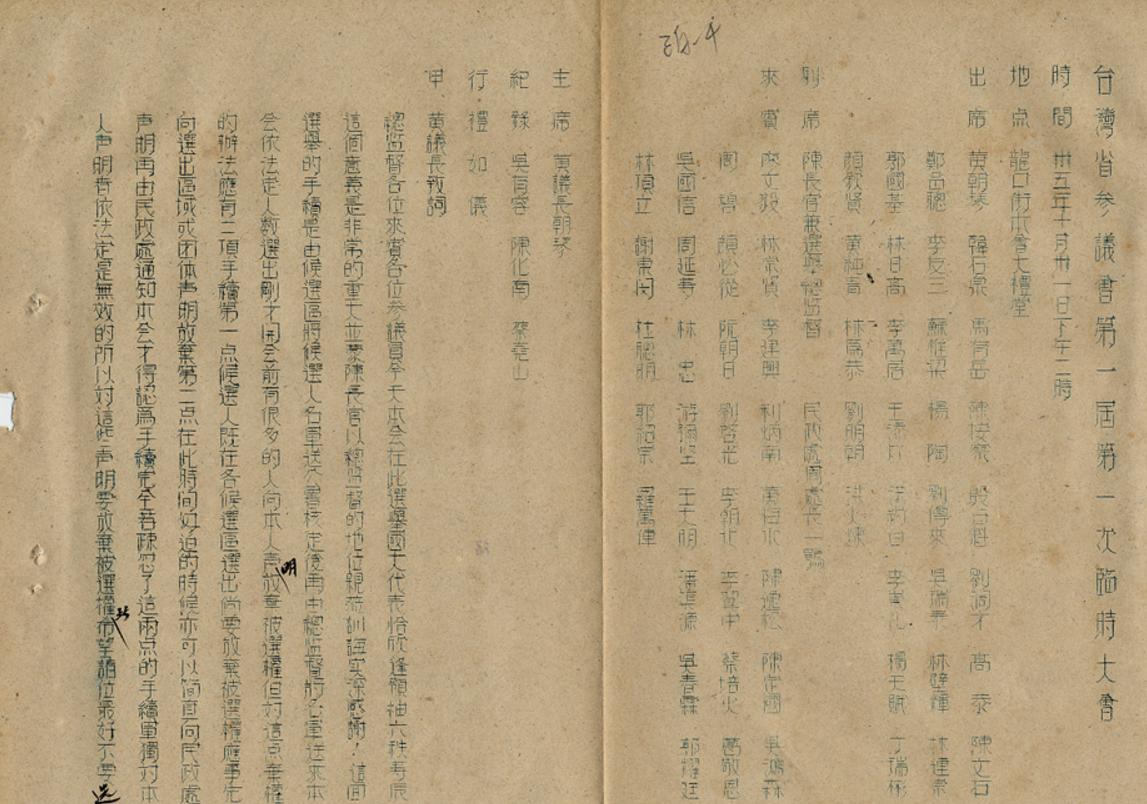 台灣省參議會第一届第一次臨時大會
時間 卅五年十月卅一日下午二時
地点 龍口街本會大禮堂
出席 黃朝琴 韓石泉 馬有岳 殷占魁 劉闊才 高恭 陳文石
鄭品聰 李友三 蘇惟梁 楊陶 劉傳來 吳瑞泰 林璧輝 林連宗
郭國基 林日高 李萬居 王添灯 洪約白 李崇礼 楊天賦 丁瑞彬
顏欽賢 黃純青 林為恭 劉明朝 洪火煉
列席 陳長官兼選舉總監督 民政處周處長一鶚
來賓 連文毅 林宗賢 李建興 利炳南 吳鴻森
周碧 顏松從 阮朝日 劉啓光 李朝北 李翼中 蔡培火 葛敬恩
吳國信 周延壽 林忠 游彌堅 王大明 潘渠源 吳春霖 郭耀廷
林頂立 謝東閔 杜聰明 郭紹宗 羅萬俥
主席 黃議長朝琴
紀錄 吳有容 陳化南 蔡堯山
行禮如儀
甲 黃議長致詞
總監督各位來賓各位參議員今天本会在此選舉國大代表恰欣逢領袖六秩寿辰
這個意義是非常的重大並蒙陳長官以總監督的地位親蒞訓誨实深感謝！這回
選舉的手續是由候選區將候選人名單送公署核定後再由總監督將名單送來本
会依法定人数選出剛才開会前有很多的人向本人声明放棄被選權但对這点棄權
的辦法應有二項手續第一点候選人既在各候選區選出尚要放棄被選權應事先
向選出區域或团体声明放棄第二点在此時间如迫的時候亦可以簡直向民政處
声明再由民政處通知本会才得認爲手續完全若疎忽了這兩点的手續單獨对本
人声明者依法定是無效的所以对這些声明要放棄被選權者希望諸位最好不要选